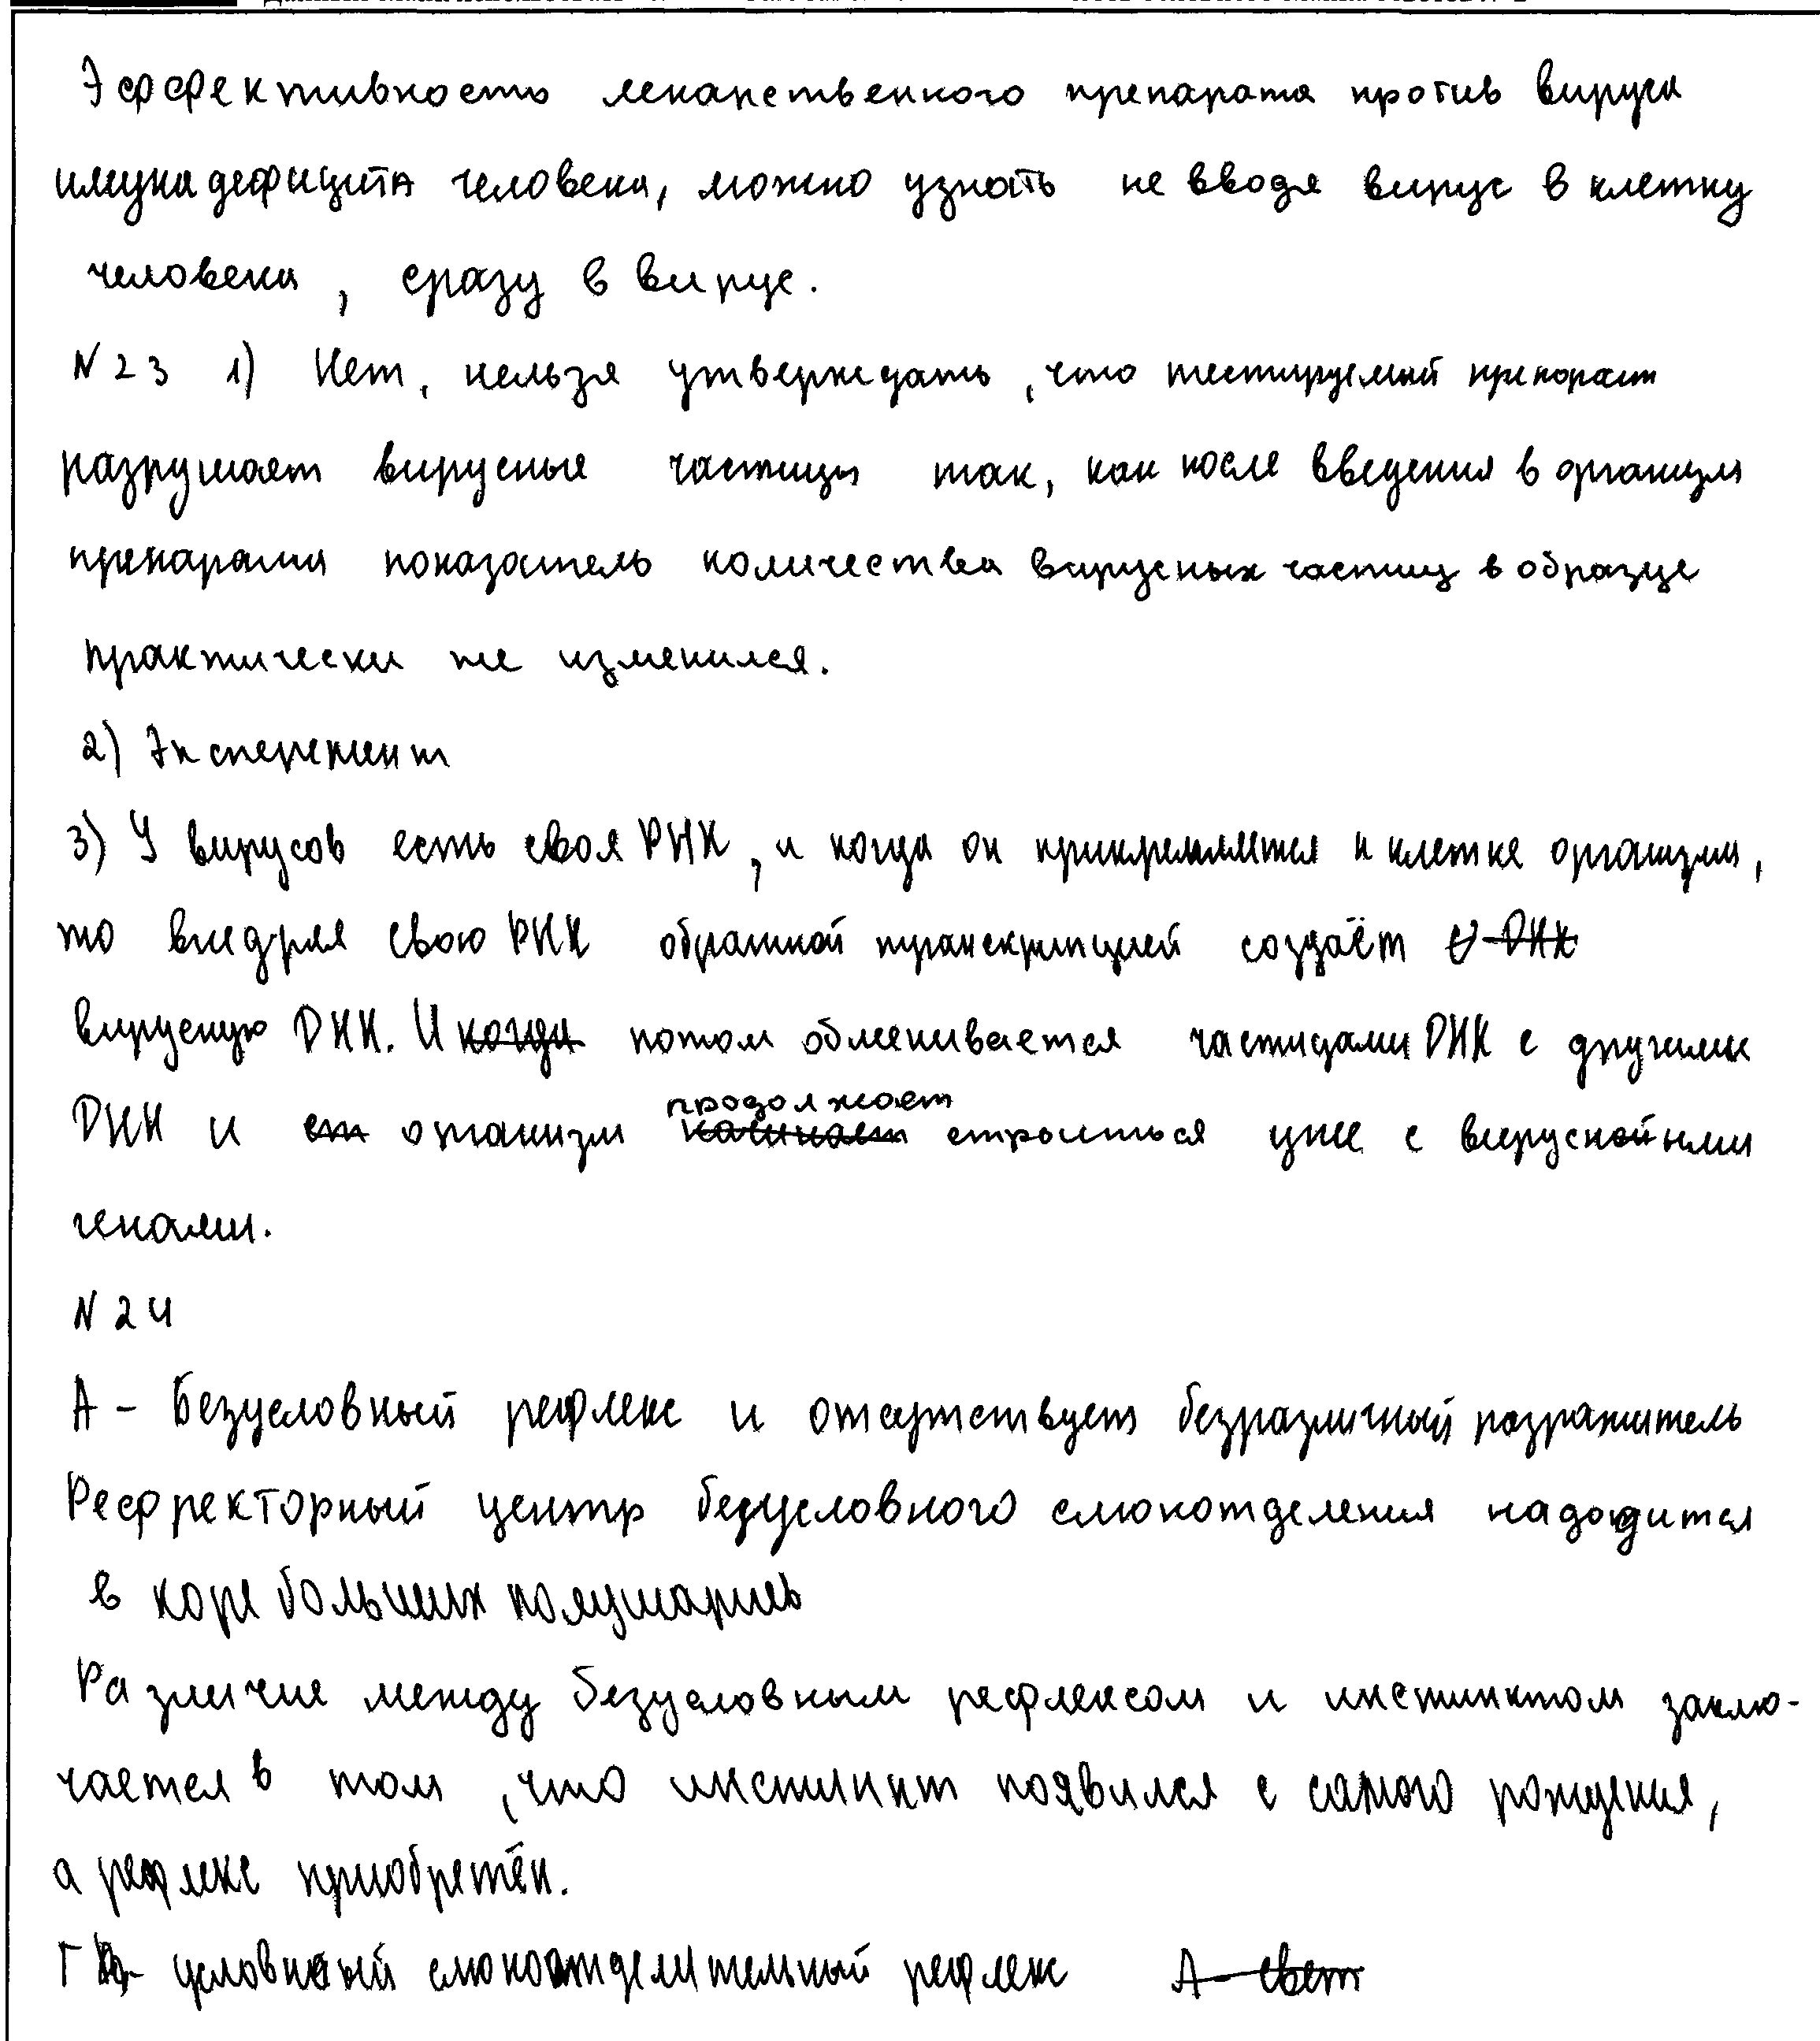 Эффективность лекарственного препарата против вируса
имунадефицита человека, можно узнать не вводя вирус в клетку
человека, сразу в вирус.
N23 1) Нет, нельзя утверждать, что тестируемый препорат
разрушает вирусные частицы так, как после введения в организм
препарата показатель количества вирусных частиц в образце
практически не изменился.
2) Эксперемент
3) У вирусов есть своя РНК, и когда он прикрепляется к клетке организма,
то внедряя свою РНК обратной транскрипцией создаёт
вирусную ДНК. И потом обменивается частицами ДНК с другими
ДНК и организм продолжает строиться уже с вирусными
генами.
N24
А - Безусловный рефлекс и отсутствует безразличный раздражитель
Рефректорный центр безусловного слюноотделения находится
в коре больших полушариев
Различие между безусловным рефлексом и инстинктом заклю-
чается в том, что инстинкт появился с самого рождения,
а рефлекс приобретён.
Г - условный слюноотделительный рефлекс А - свет